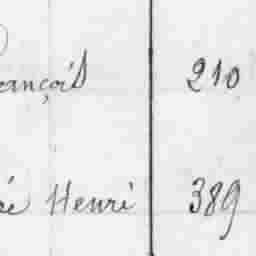 ançois 210
é Henri 389